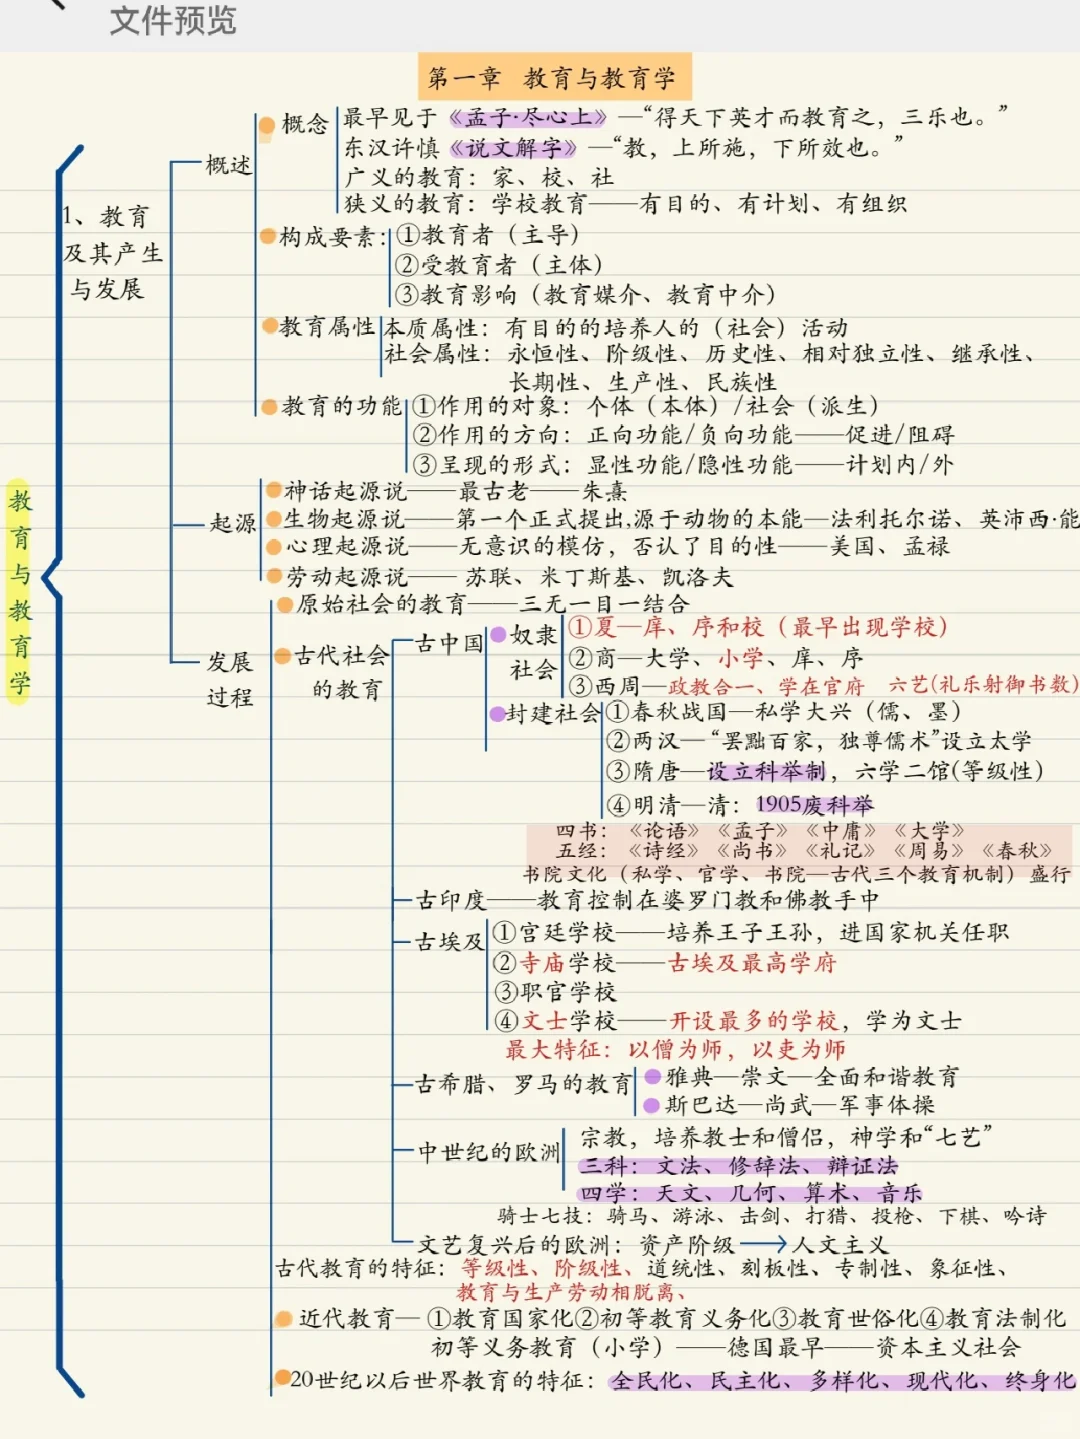 文件预览
第一章 教育与教育学
教育与教育学
1、教育
及其产生
与发展
概述
概念
最早见于《孟子·尽心上》—“得天下英才而教育之，三乐也。”
东汉许慎《说文解字》—“教，上所施，下所效也。”
广义的教育：家、校、社
狭义的教育：学校教育——有目的、有计划、有组织
构成要素：①教育者（主导）
②受教育者（主体）
③教育影响（教育媒介、教育中介）
教育属性 本质属性：有目的的培养人的（社会）活动
社会属性：永恒性、阶级性、历史性、相对独立性、继承性、
长期性、生产性、民族性
教育的功能 ①作用的对象：个体（本体）/社会（派生）
②作用的方向：正向功能/负向功能——促进/阻碍
③呈现的形式：显性功能/隐性功能——计划内/外
起源
神话起源说——最古老——朱熹
生物起源说——第一个正式提出,源于动物的本能—法利托尔诺、英沛西·能
心理起源说——无意识的模仿，否认了目的性——美国、孟禄
劳动起源说—— 苏联、米丁斯基、凯洛夫
发展
过程
原始社会的教育——三无一目一结合
古代社会
的教育
古中国
奴隶
社会
①夏—庠、序和校（最早出现学校）
②商—大学、小学、庠、序
③西周—政教合一、学在官府 六艺(礼乐射御书数)
封建社会 ①春秋战国—私学大兴（儒、墨）
②两汉—“罢黜百家，独尊儒术”设立太学
③隋唐—设立科举制，六学二馆(等级性)
④明清—清：1905废科举
四书：《论语》《孟子》《中庸》《大学》
五经：《诗经》《尚书》《礼记》《周易》《春秋》
书院文化（私学、官学、书院—古代三个教育机制）盛行
古印度——教育控制在婆罗门教和佛教手中
古埃及 ①宫廷学校——培养王子王孙，进国家机关任职
②寺庙学校——古埃及最高学府
③职官学校
④文士学校——开设最多的学校，学为文士
最大特征：以僧为师，以吏为师
古希腊、罗马的教育 雅典—崇文—全面和谐教育
斯巴达—尚武—军事体操
中世纪的欧洲 宗教，培养教士和僧侣，神学和“七艺”
三科：文法、修辞法、辩证法
四学：天文、几何、算术、音乐
骑士七技：骑马、游泳、击剑、打猎、投枪、下棋、吟诗
文艺复兴后的欧洲：资产阶级→人文主义
古代教育的特征：等级性、阶级性、道统性、刻板性、专制性、象征性、
教育与生产劳动相脱离、
近代教育— ①教育国家化②初等教育义务化③教育世俗化④教育法制化
初等义务教育（小学）——德国最早——资本主义社会
20世纪以后世界教育的特征：全民化、民主化、多样化、现代化、终身化